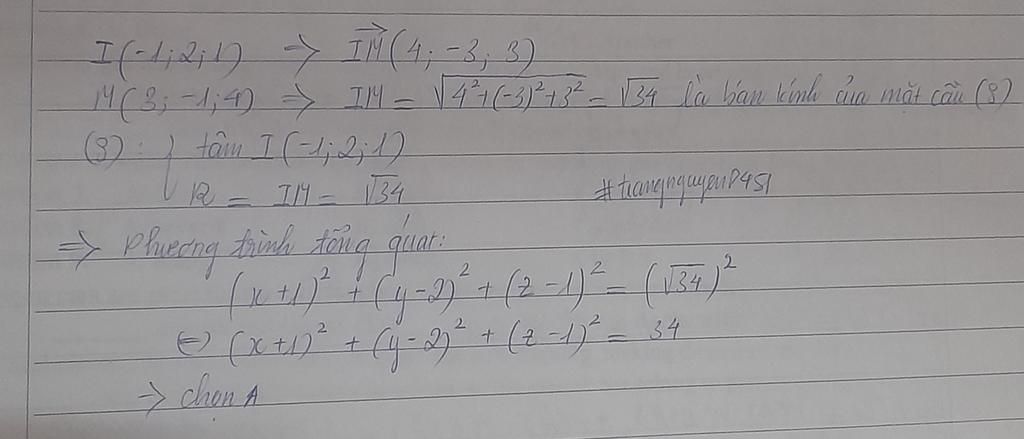 I(-1;2;1) => \overrightarrow{IM}(4;-3;3)
M(3;-1;4) => IM = √(4²+(-3)²+3²) = √34 là bán kính của mặt cầu (S)
(S): { tâm I(-1;2;1)
R = IM = √34 #trangnguyenP451
=> Phương trình tổng quát:
(x+1)² + (y-2)² + (z-1)² = (√34)²
<=> (x+1)² + (y-2)² + (z-1)² = 34
-> chọn A